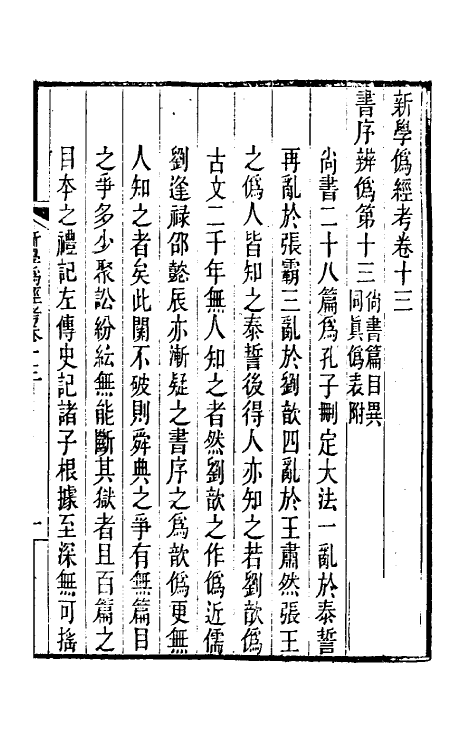 新學僞經考卷十三
書序辨僞第十三尙書篇目異
同眞僞表附
尙書二十八篇爲孔子刪定大法一亂於泰誓
再亂於張霸三亂於劉歆四亂於王肅然張王
之僞人皆知之泰誓後得人亦知之若劉歆僞
古文二千年無人知之者然劉歆之作僞近儒
劉逢祿邵懿辰亦漸疑之書序之爲歆僞更無
人知之者矣此關不破則舜典之爭有無篇目
之爭多少聚訟紛紜無能斷其獄者且百篇之
目本之禮記左傳史記諸子根據至深無可搖
新學僞經考卷十三
一